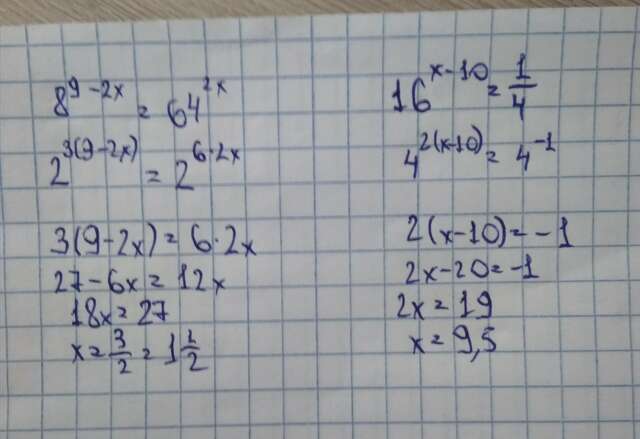 8^{9-2x} = 64^{2x}
2^{3(9-2x)} = 2^{6·2x}
3(9-2x) = 6·2x
27-6x = 12x
18x = 27
x = 3/2 = 1 1/2
16^{x-10} = 1/4
4^{2(x-10)} = 4^{-1}
2(x-10) = -1
2x-20 = -1
2x = 19
x = 9,5